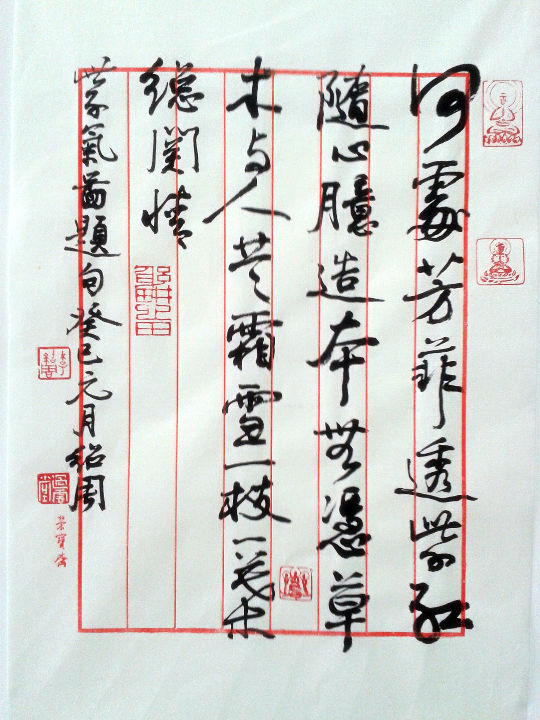 何處芳菲透紫紅
隨心臆造本無憑草
木与人共霜雪一枝一葉
總關情
紫氣啚題句癸巳元月紹周
榮寶齋